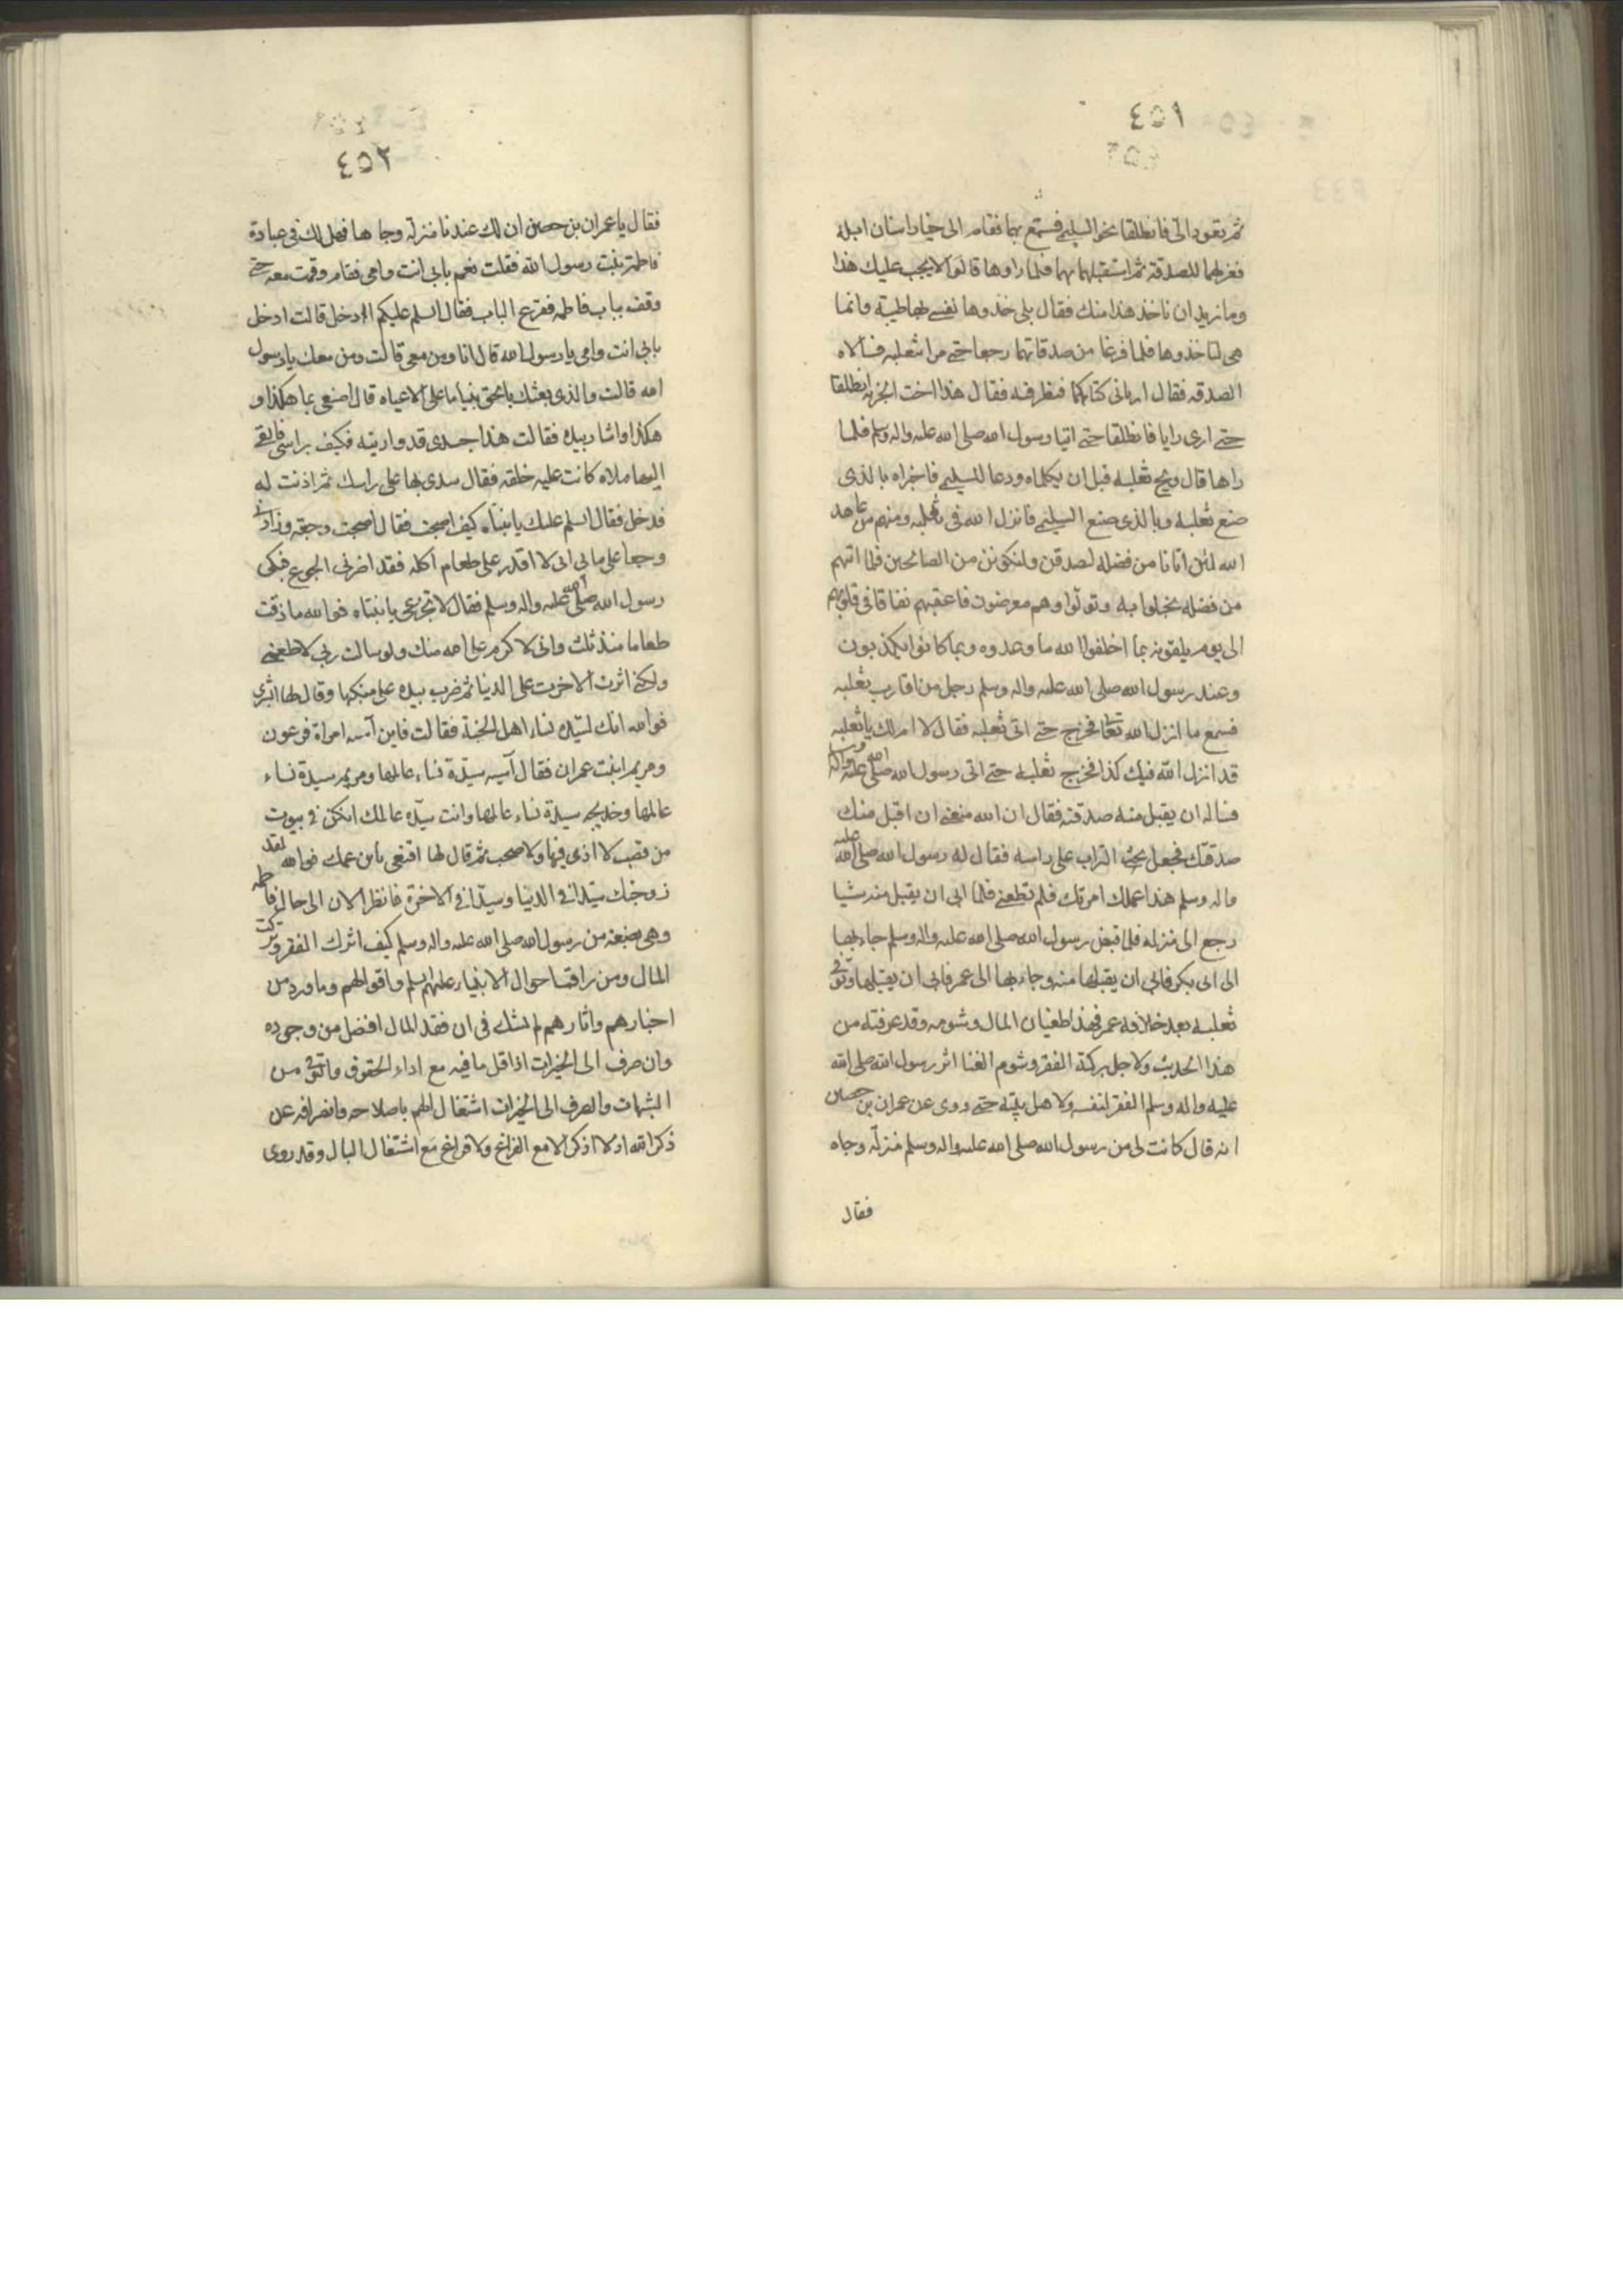 ٤٥١
ثم تعودا الى فانطلقا نحو السليمى فسمع بهما فقام الى خيار اسنان ابله
فعزلها للصدقة ثم استقبلهما بهما فلما راوها قالوا لا يجب عليك هذا
وما نريد ان ناخذ هذا منك فقال بلى خذوها نفسى بها طيبة وانما
هى لتاخذوها فلما فرغا من صدقاتهما رجعا حتى مرا بثعلبه فسالاه
الصدقه فقال ارياني كتابكما فنظر فيه فقال هذا اخت الجزيه انطلقا
حتى ارى رايا فانطلقا حتى اتيا رسول الله صلى الله عليه واله وسلم فلما
راها قال ويح ثعلبه قبل ان يكلماه ودعا للسليمى فاخبراه بالذى
صنع ثعلبة وبالذى صنع السليمى فانزل الله فى ثعلبه ومنهم من عاهد
الله لئن اتانا من فضله لنصدقن ولنكونن من الصالحين فلما اتيهم
من فضله بخلوا به وتولوا وهم معرضون فاعقبهم نفاقا فى قلوبهم
الى يوم يلقونه بما اخلفوا الله ما وعدوه وبما كانوا يكذبون
وعند رسول الله صلى الله عليه واله وسلم رجل من اقارب ثعلبه
فسمع ما انزل الله تعا فخرج حتى اتى ثعلبه فقال لا ام لك يا ثعلبه
قد انزل الله فيك كذا فخرج ثعلبه حتى اتى رسول الله صلى الله عليه واله وسلم
فساله ان يقبل منه صدقته فقال ان الله منعنى ان اقبل منك
صدقتك فجعل يحثى التراب على راسه فقال له رسول الله صلى الله عليه
واله وسلم هذا عملك امرتك فلم تطعنى فلما ابى ان يقبل منه شيا
رجع الى منزله فلما قبض رسول الله صلى الله عليه واله وسلم جاء بها
الى ابى بكر فابى ان يقبلها منه وجاء بها الى عمر فابى ان يقبلها وتوفى
ثعلبه بعد خلافة عمر فهذا طغيان المال وشومه وقد عرفته من
هذا الحديث ولاجل بركة الفقر وشوم الغنا اثر رسول الله صلى الله
عليه واله وسلم الفقر لنفسه ولاهل بيته حتى روى عن عمران بن حصين
انه قال كانت لى من رسول الله صلى الله عليه واله وسلم منزلة وجاه
فقال
٤٥٢
فقال يا عمران بن حصين ان لك عندنا منزلة وجاها فهل لك فى عبادة
فاطمة بنت رسول الله فقلت نعم بابى انت وامى فقام وقمت معه حتى
وقف بباب فاطمه فقرع الباب فقال السلم عليكم اادخل قالت ادخل
بابى انت وامى يا رسول الله قال انا ومن معى قالت ومن معك يا رسول
الله قالت والذى بعثك بالحق نبيا ما على الا عباه قال اصنعى بها هكذا و
هكذا واشار بيده فقالت هذا جسدى قد واريته فكيف براسى فالقى
اليها ملاه كانت عليه خلقه فقال سدى بها على راسك ثم اذنت له
فدخل فقال السلم عليك يا بنتاه كيف اصبحت فقال اصبحت وجعه وزادنى
وجعا على مابى انى لا اقدر على طعام اكله فقد اضرنى الجوع فبكى
رسول الله صلى الله عليه واله وسلم فقال لا تجزعى يا بنتاه فوالله ما ذقت
طعاما منذ ثلث وانى لاكرم على الله منك ولو سالت ربى لاطعمنى
ولكنى اثرت الاخرت على الدنيا ثم ضرب بيده على منكبها وقال لها ابشرى
فوالله انك لسيدة نساء اهل الجنة فقالت فاين آسيه امراة فرعون
ومريم ابنت عمران فقال آسيه سيدة نساء عالمها ومريم سيدة نساء
عالمها وخديجه سيدة نساء عالمها وانت سيدة عالمك انكن فى بيوت
من قصب لا اذى فيها ولا صخب ثم قال لها اقنعى بابن عمك فوالله لقد
زوجتك سيدا فى الدنيا وسيدا فى الاخرة فانظر الان الى حال فاطمه
وهى بضعة من رسول الله صلى الله عليه واله وسلم كيف اثرت الفقر وتركت
المال ومن راقب احوال الانبياء عليهم السلم واقوالهم وما ورد من
اخبارهم واثارهم لم يشك فى ان فقد المال افضل من وجوده
وان صرف الى الخيرات اذا قل ما فيه مع اداء الحقوق والتوقى من
الشبهات والصرف الى الخيرات اشتغال الهم باصلاحه وانصرافه عن
ذكر الله اذ لا ذكر الا مع الفراغ ولا فراغ مع اشتغال البال وقد روى